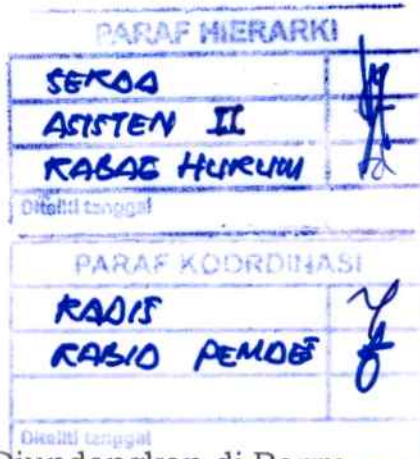 PARAF HIERARKI
SEKDA
ASISTEN II
KABAG HUKUM
Diteliti tanggal
PARAF KOORDINASI
KADIS
KABID PEMDES
Diteliti tanggal
Diundangkan di